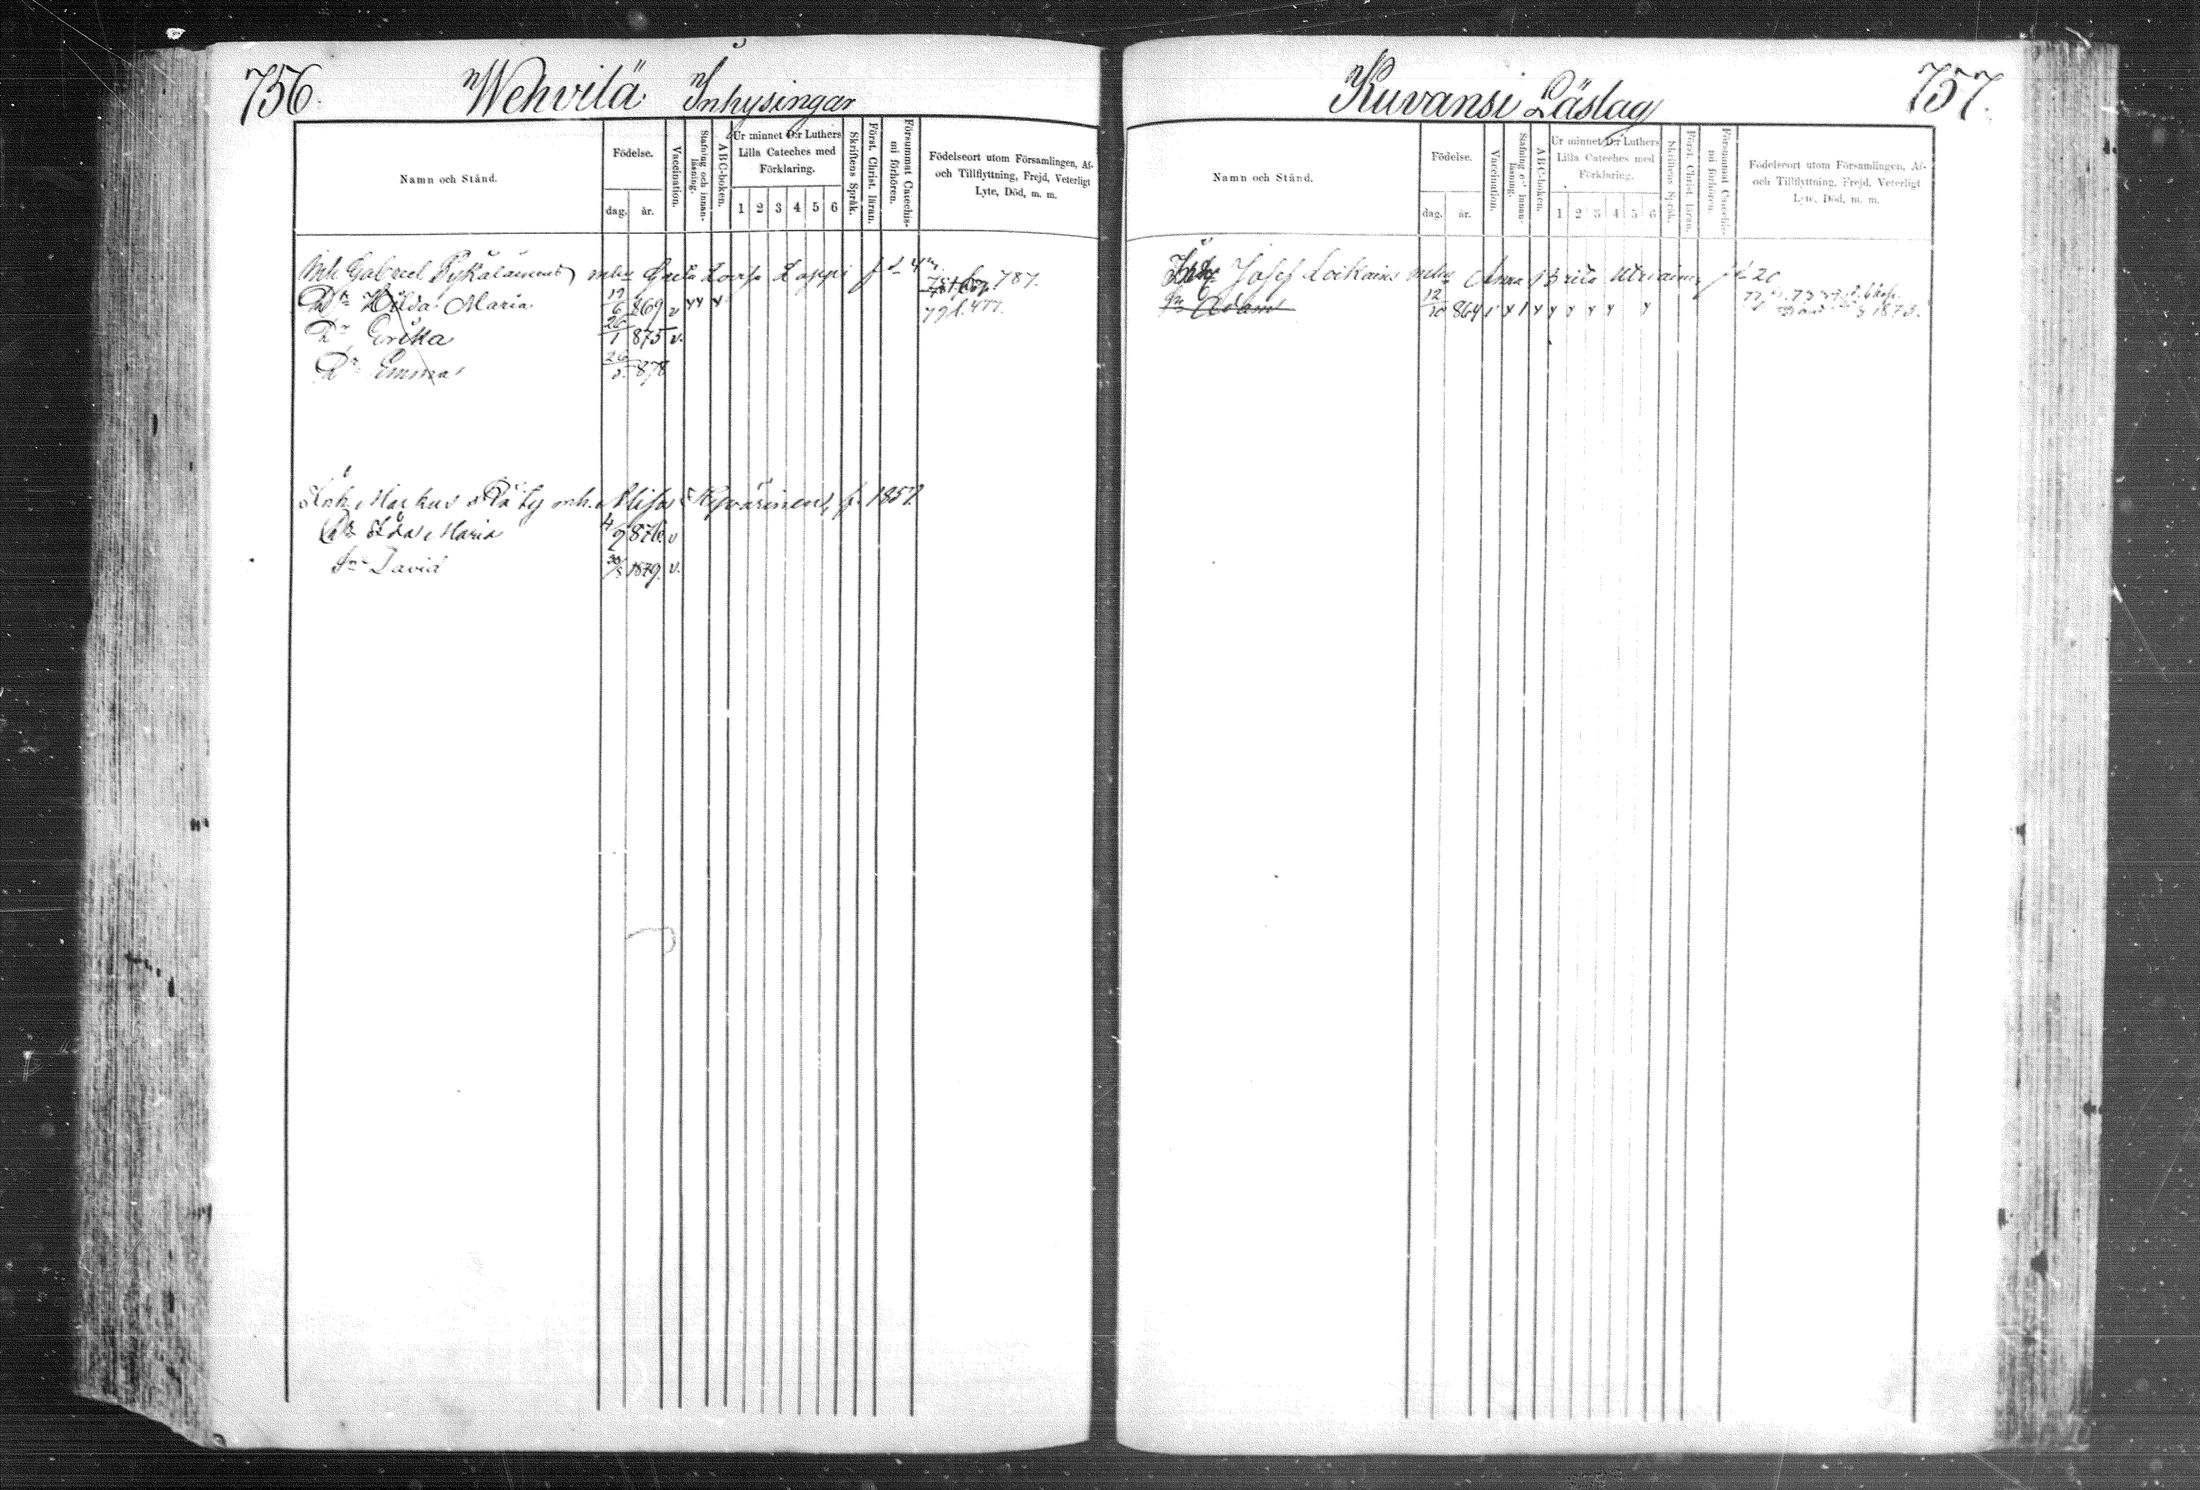 756. Wehvilä Inhysingar
Namn och Stånd.
Födelse.
dag. år.
Vaccination.
Stafning och innanläsning.
ABC-boken.
Ur minnet Dr Luthers
Lilla Cateches med
Förklaring.
1 2 3 4 5 6
Skriftens Språk.
Först. Christ. läran.
Försummat Catechismi förhören.
Födelseort utom Församlingen, Af-
och Tillflyttning, Frejd, Veterligt
Lyte, Död, m. m.
Gabriel Pykäläinens mhu Loviisa Lappi 787.
Dr Hilda Maria 6 869 v y y y 79 f. 477.
Dr Erika 26/1 875 v.
Dr Emma 878
Inh. Markus Räty mh. Hyvärinens, f. 1857.
Dr Ida Maria 4/9 876 v
Sn David 1879. v.
Kuvansi Läslag 757.
Namn och Stånd.
Födelse.
dag. år.
Vaccination.
Stafning och innanläsning.
ABC-boken.
Ur minnet Dr Luthers
Lilla Cateches med
Förklaring.
1 2 3 4 5 6
Skriftens Språk.
Först. Christ. läran.
Försummat Catechismi förhören.
Födelseort utom Församlingen, Af-
och Tillflyttning, Frejd, Veterligt
Lyte, Död, m. m.
Josef Loikains mhu Anna Brita Utriainen
Sn Adam 12/10 864
1873.